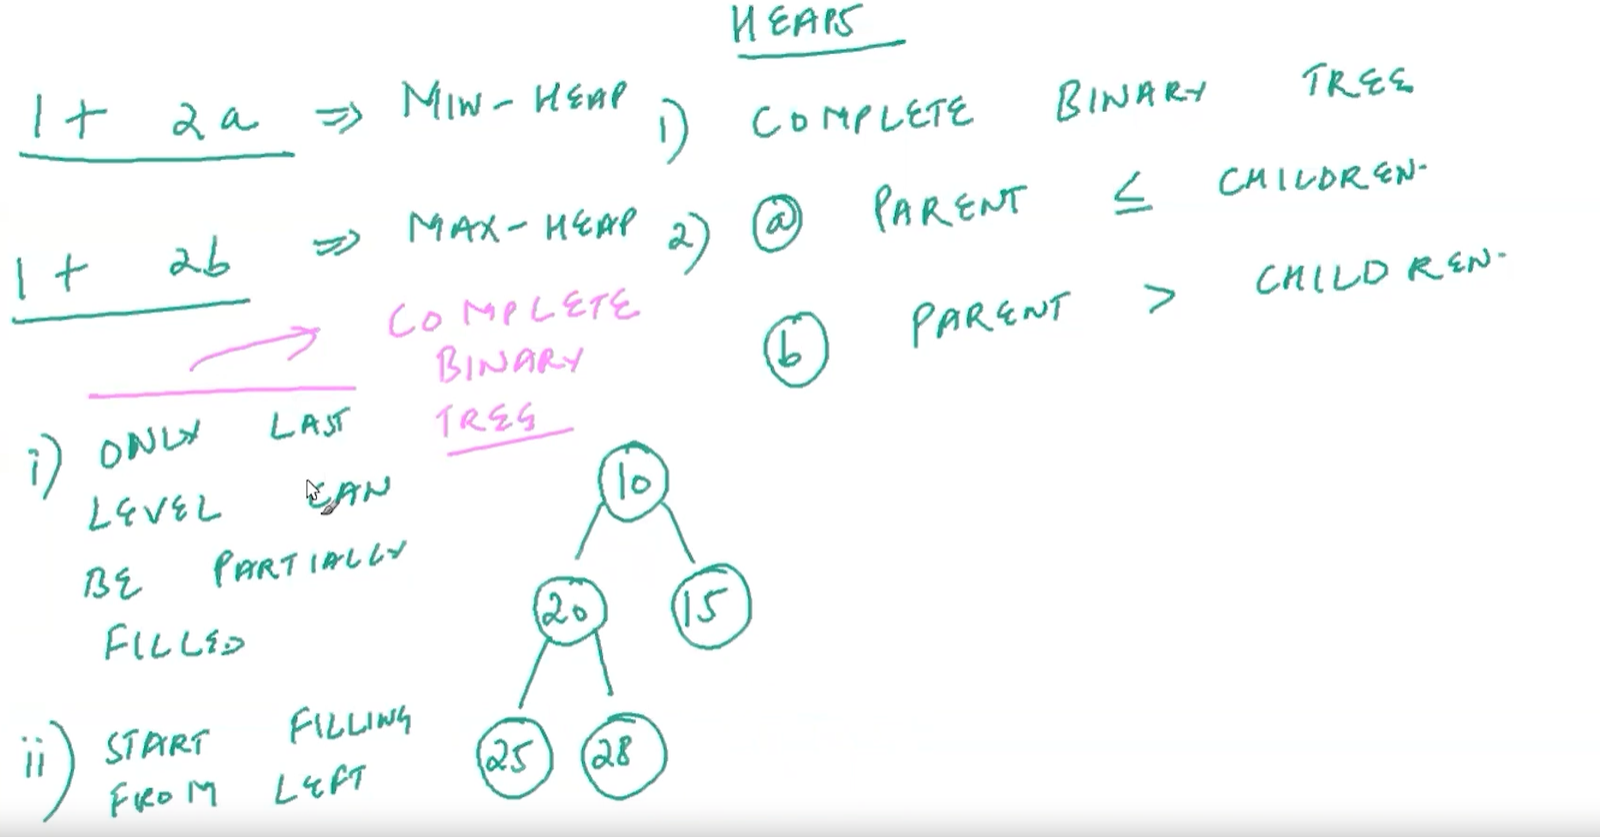 HEAPS
1 + 2a ⇒ MIN-HEAP
1 + 2b ⇒ MAX-HEAP
1) COMPLETE BINARY TREE
2) a PARENT ≤ CHILDREN.
b PARENT > CHILDREN.
COMPLETE
BINARY
TREE
i) ONLY LAST
LEVEL CAN
BE PARTIALLY
FILLED
ii) START FILLING
FROM LEFT
10
20 15
25 28